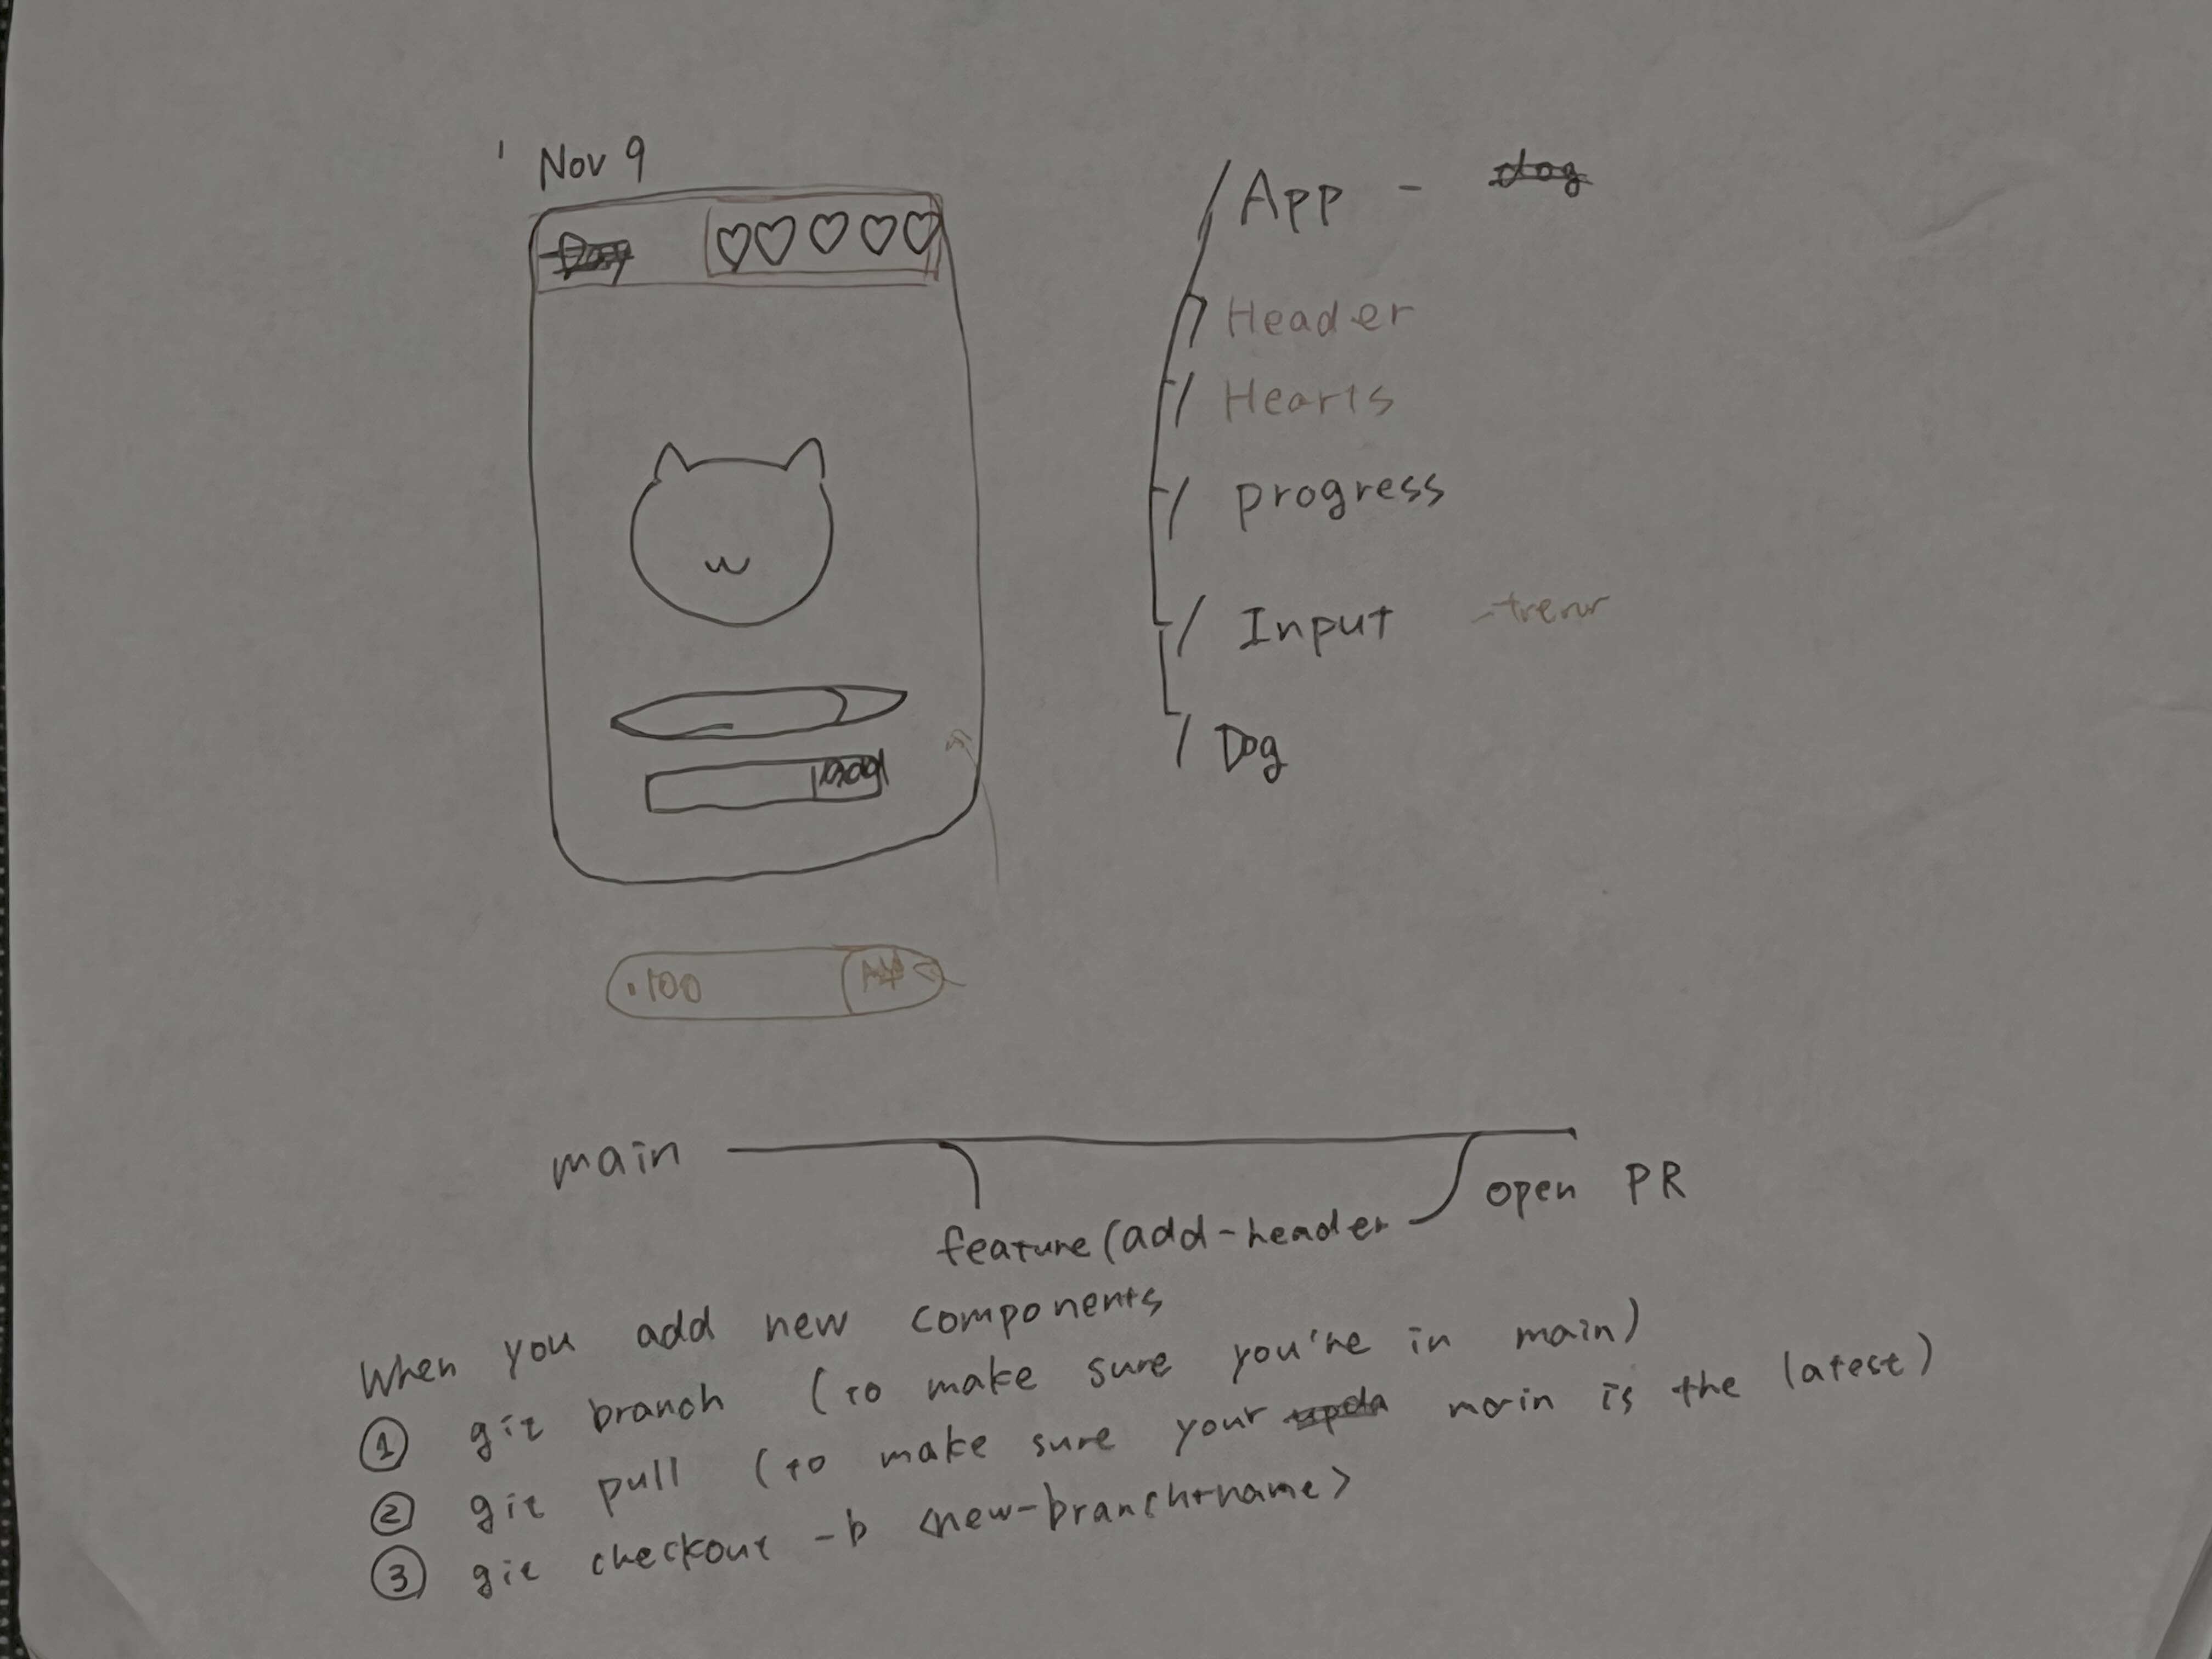 Nov 9
add
.100
/ App - dog
/ Header
/ Hearts
/ progress
/ Input
/ Dog
main
open PR
feature(add-header
When you add new components
① git branch (to make sure you're in main)
② git pull (to make sure your main is the latest)
③ git checkout -b <new-branch-name>